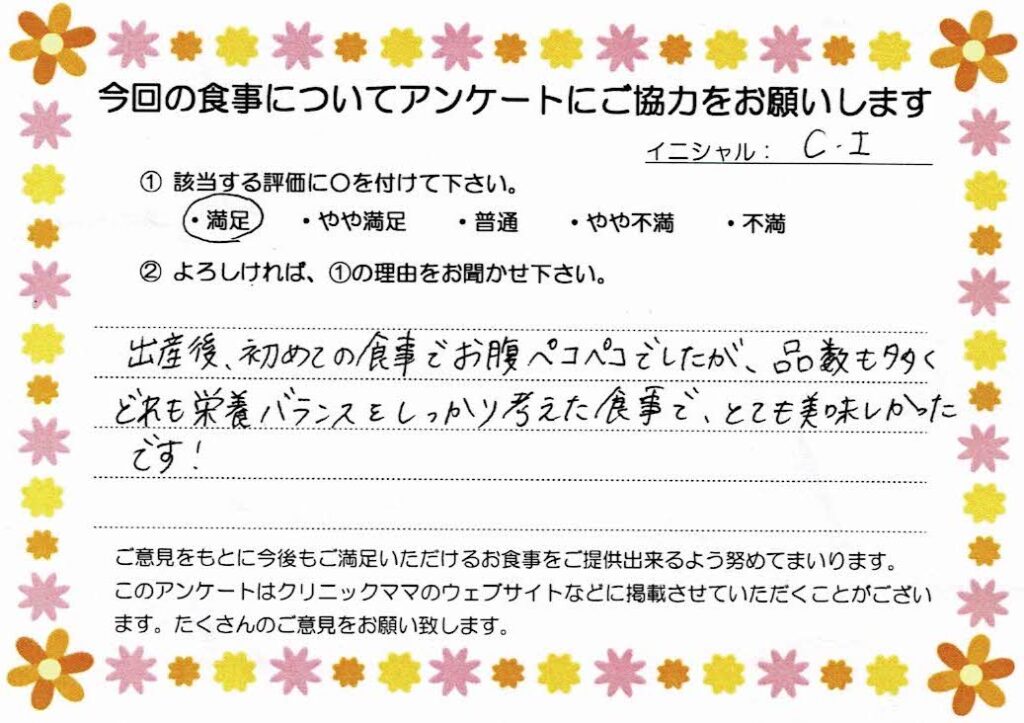 今回の食事についてアンケートにご協力をお願いします
イニシャル： C・I
① 該当する評価に〇を付けて下さい。
・満足 ・やや満足 ・普通 ・やや不満 ・不満
② よろしければ、①の理由をお聞かせ下さい。
出産後、初めての食事でお腹ペコペコでしたが、品数も多く
どれも栄養バランスをしっかり考えた食事で、とても美味しかった
です！
ご意見をもとに今後もご満足いただけるお食事をご提供出来るよう努めてまいります。
このアンケートはクリニックママのウェブサイトなどに掲載させていただくことがござい
ます。たくさんのご意見をお願い致します。